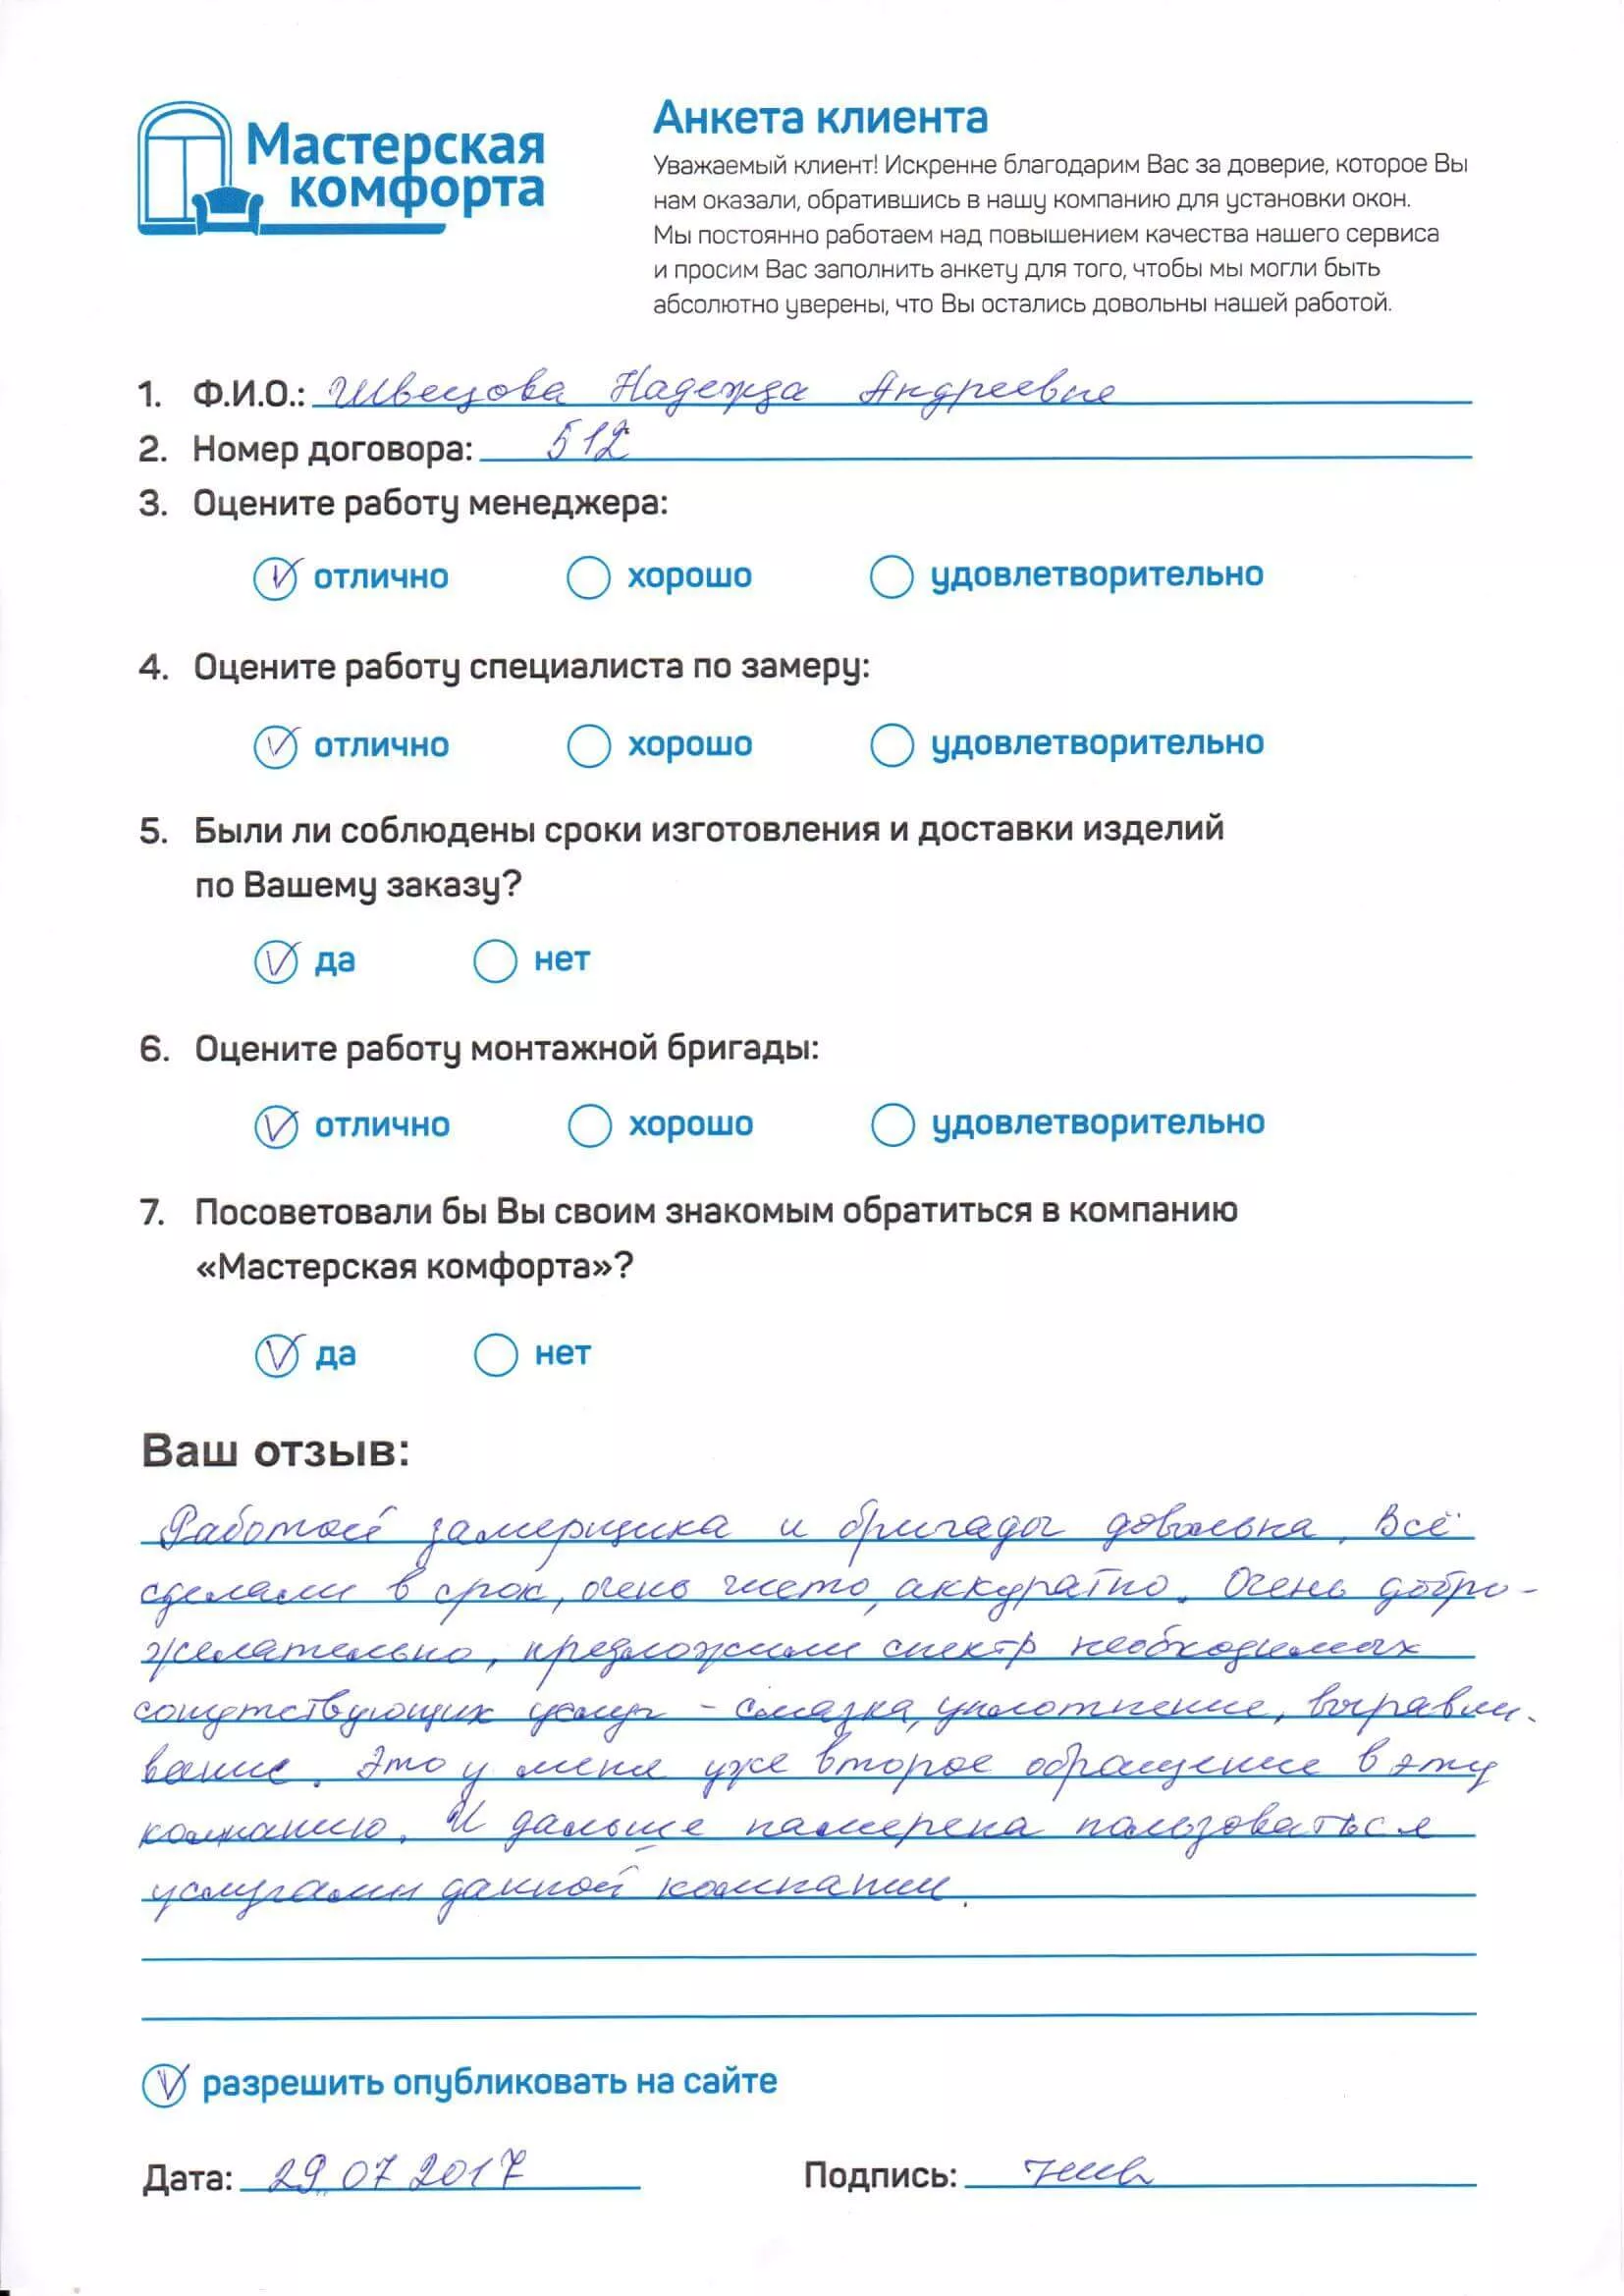 Мастерская
комфорта
Анкета клиента
Уважаемый клиент! Искренне благодарим Вас за доверие, которое Вы
нам оказали, обратившись в нашу компанию для установки окон.
Мы постоянно работаем над повышением качества нашего сервиса
и просим Вас заполнить анкету для того, чтобы мы могли быть
абсолютно уверены, что Вы остались довольны нашей работой.
1. Ф.И.О.: Швецова Надежда Андреевна
2. Номер договора: 512
3. Оцените работу менеджера:
отлично хорошо удовлетворительно
4. Оцените работу специалиста по замеру:
отлично хорошо удовлетворительно
5. Были ли соблюдены сроки изготовления и доставки изделий
по Вашему заказу?
да нет
6. Оцените работу монтажной бригады:
отлично хорошо удовлетворительно
7. Посоветовали бы Вы своим знакомым обратиться в компанию
«Мастерская комфорта»?
да нет
Ваш отзыв:
Работой замерщика и бригады довольна, Всё
сделали в срок, очень чисто, аккуратно. Очень добро-
желательно, предложили спектр необходимых
сопутствующих услуг - смазка, уплотнение, выравни-
вание. Это у меня уже второе обращение в эту
компанию. И дальше намерена пользоваться
услугами данной компании.
разрешить опубликовать на сайте
Дата: 29.07 2017 Подпись: